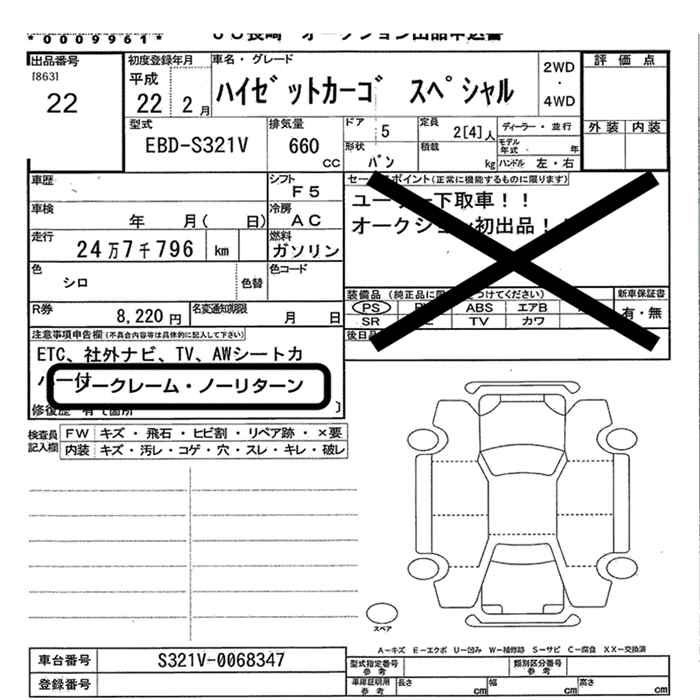 *0009961*
ＪＵ長崎 オークション出品申込書
出品番号
[863]
22
初度登録年月
平成
22 2月
車名・グレード
ハイゼットカーゴ スペシャル
2WD
・
4WD
評価点
外装 内装
型式
EBD-S321V
排気量
660
CC
ドア
5
定員
2[4]人
ディーラー・並行
モデル年式 年
形状
バン
積載
kg
ハンドル 左・右
車歴
シフト
F5
車検
年 月( 日)
冷房
AC
走行
24万7千796 km
燃料
ガソリン
色
シロ
色替
色コード
R券
8,220円
名変通知期限
月 日
セールスポイント(正常に機能するものに限ります)
ユーザー下取車！！
オークション初出品！！
装備品(純正品に
つけてください)
PS
ABS
エアB
SR
TV
カワ
新車保証書
有・無
後日品
注意事項申告欄(不具合内容等は具体的に記入して下さい)
ETC、社外ナビ、TV、AWシートカ
バー付
ノークレーム・ノーリターン
修復歴 有て箇所
検査員記入欄
FW キズ・飛石・ヒビ割・リペア跡・×要
内装 キズ・汚レ・コゲ・穴・スレ・キレ・破レ
スペア
A－キズ E－エクボ U－凹み W－補修跡 S－サビ C－腐食 XX－交換済
車台番号 S321V-0068347
登録番号
型式指定番号
参考
類別区分番号
参考
車庫証明用
参考
長さ cm
幅 cm
高さ cm